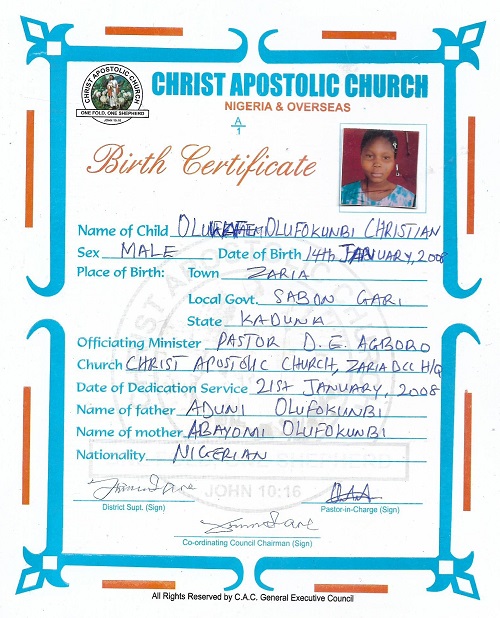 CHRIST APOSTOLIC CHURCH
ONE FOLD, ONE SHEPHERD
JOHN 10:16
CHRIST APOSTOLIC CHURCH
NIGERIA & OVERSEAS
A/1
Birth Certificate
Name of Child OLUFOKUNBI CHRISTIAN
Sex MALE Date of Birth 14th JANUARY, 2008
Place of Birth: Town ZARIA
Local Govt. SABON GARI
State KADUNA
Officiating Minister PASTOR D. E. AGBORO
Church CHRIST APOSTOLIC CHURCH, ZARIA DCC H/Q
Date of Dedication Service 21ST JANUARY, 2008
Name of father ADUNI OLUFOKUNBI
Name of mother ABAYOMI OLUFOKUNBI
Nationality NIGERIAN
JOHN 10:16
District Supt. (Sign)
Pastor-in-Charge (Sign)
Co-ordinating Council Chairman (Sign)
All Rights Reserved by C.A.C. General Executive Council